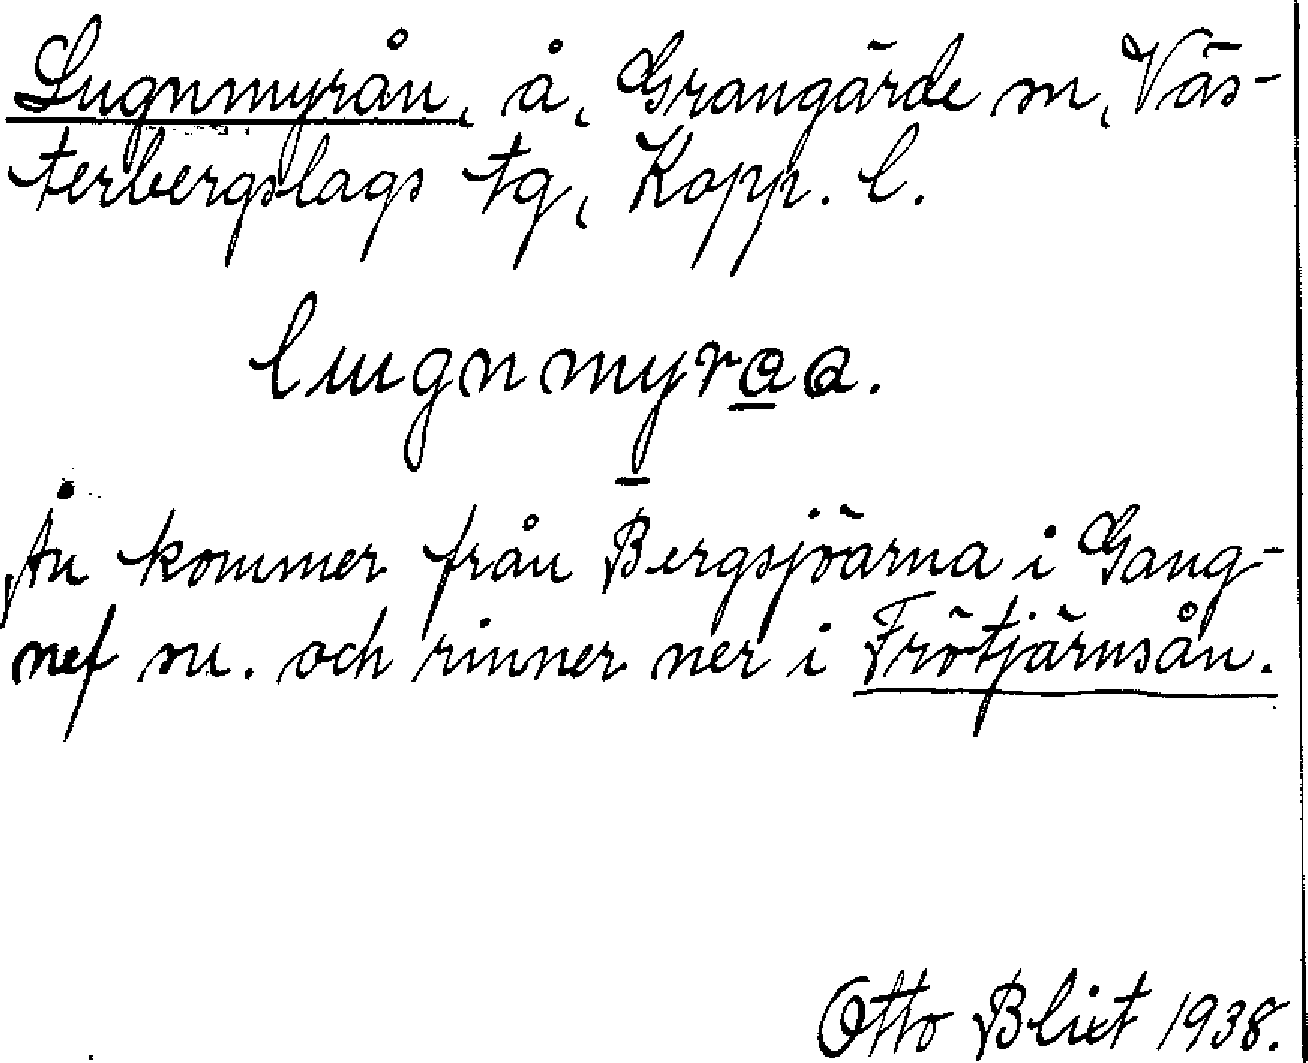 Lugnmyrån, å, Grangärde sn, Väs-
terbergslags tg, Kopp. l.
lugnmyraa.
Ån kommer från Bergsjöarna i Gang-
nef sn. och rinner ner i Frötjärnsån.
Otto Blixt 1938.